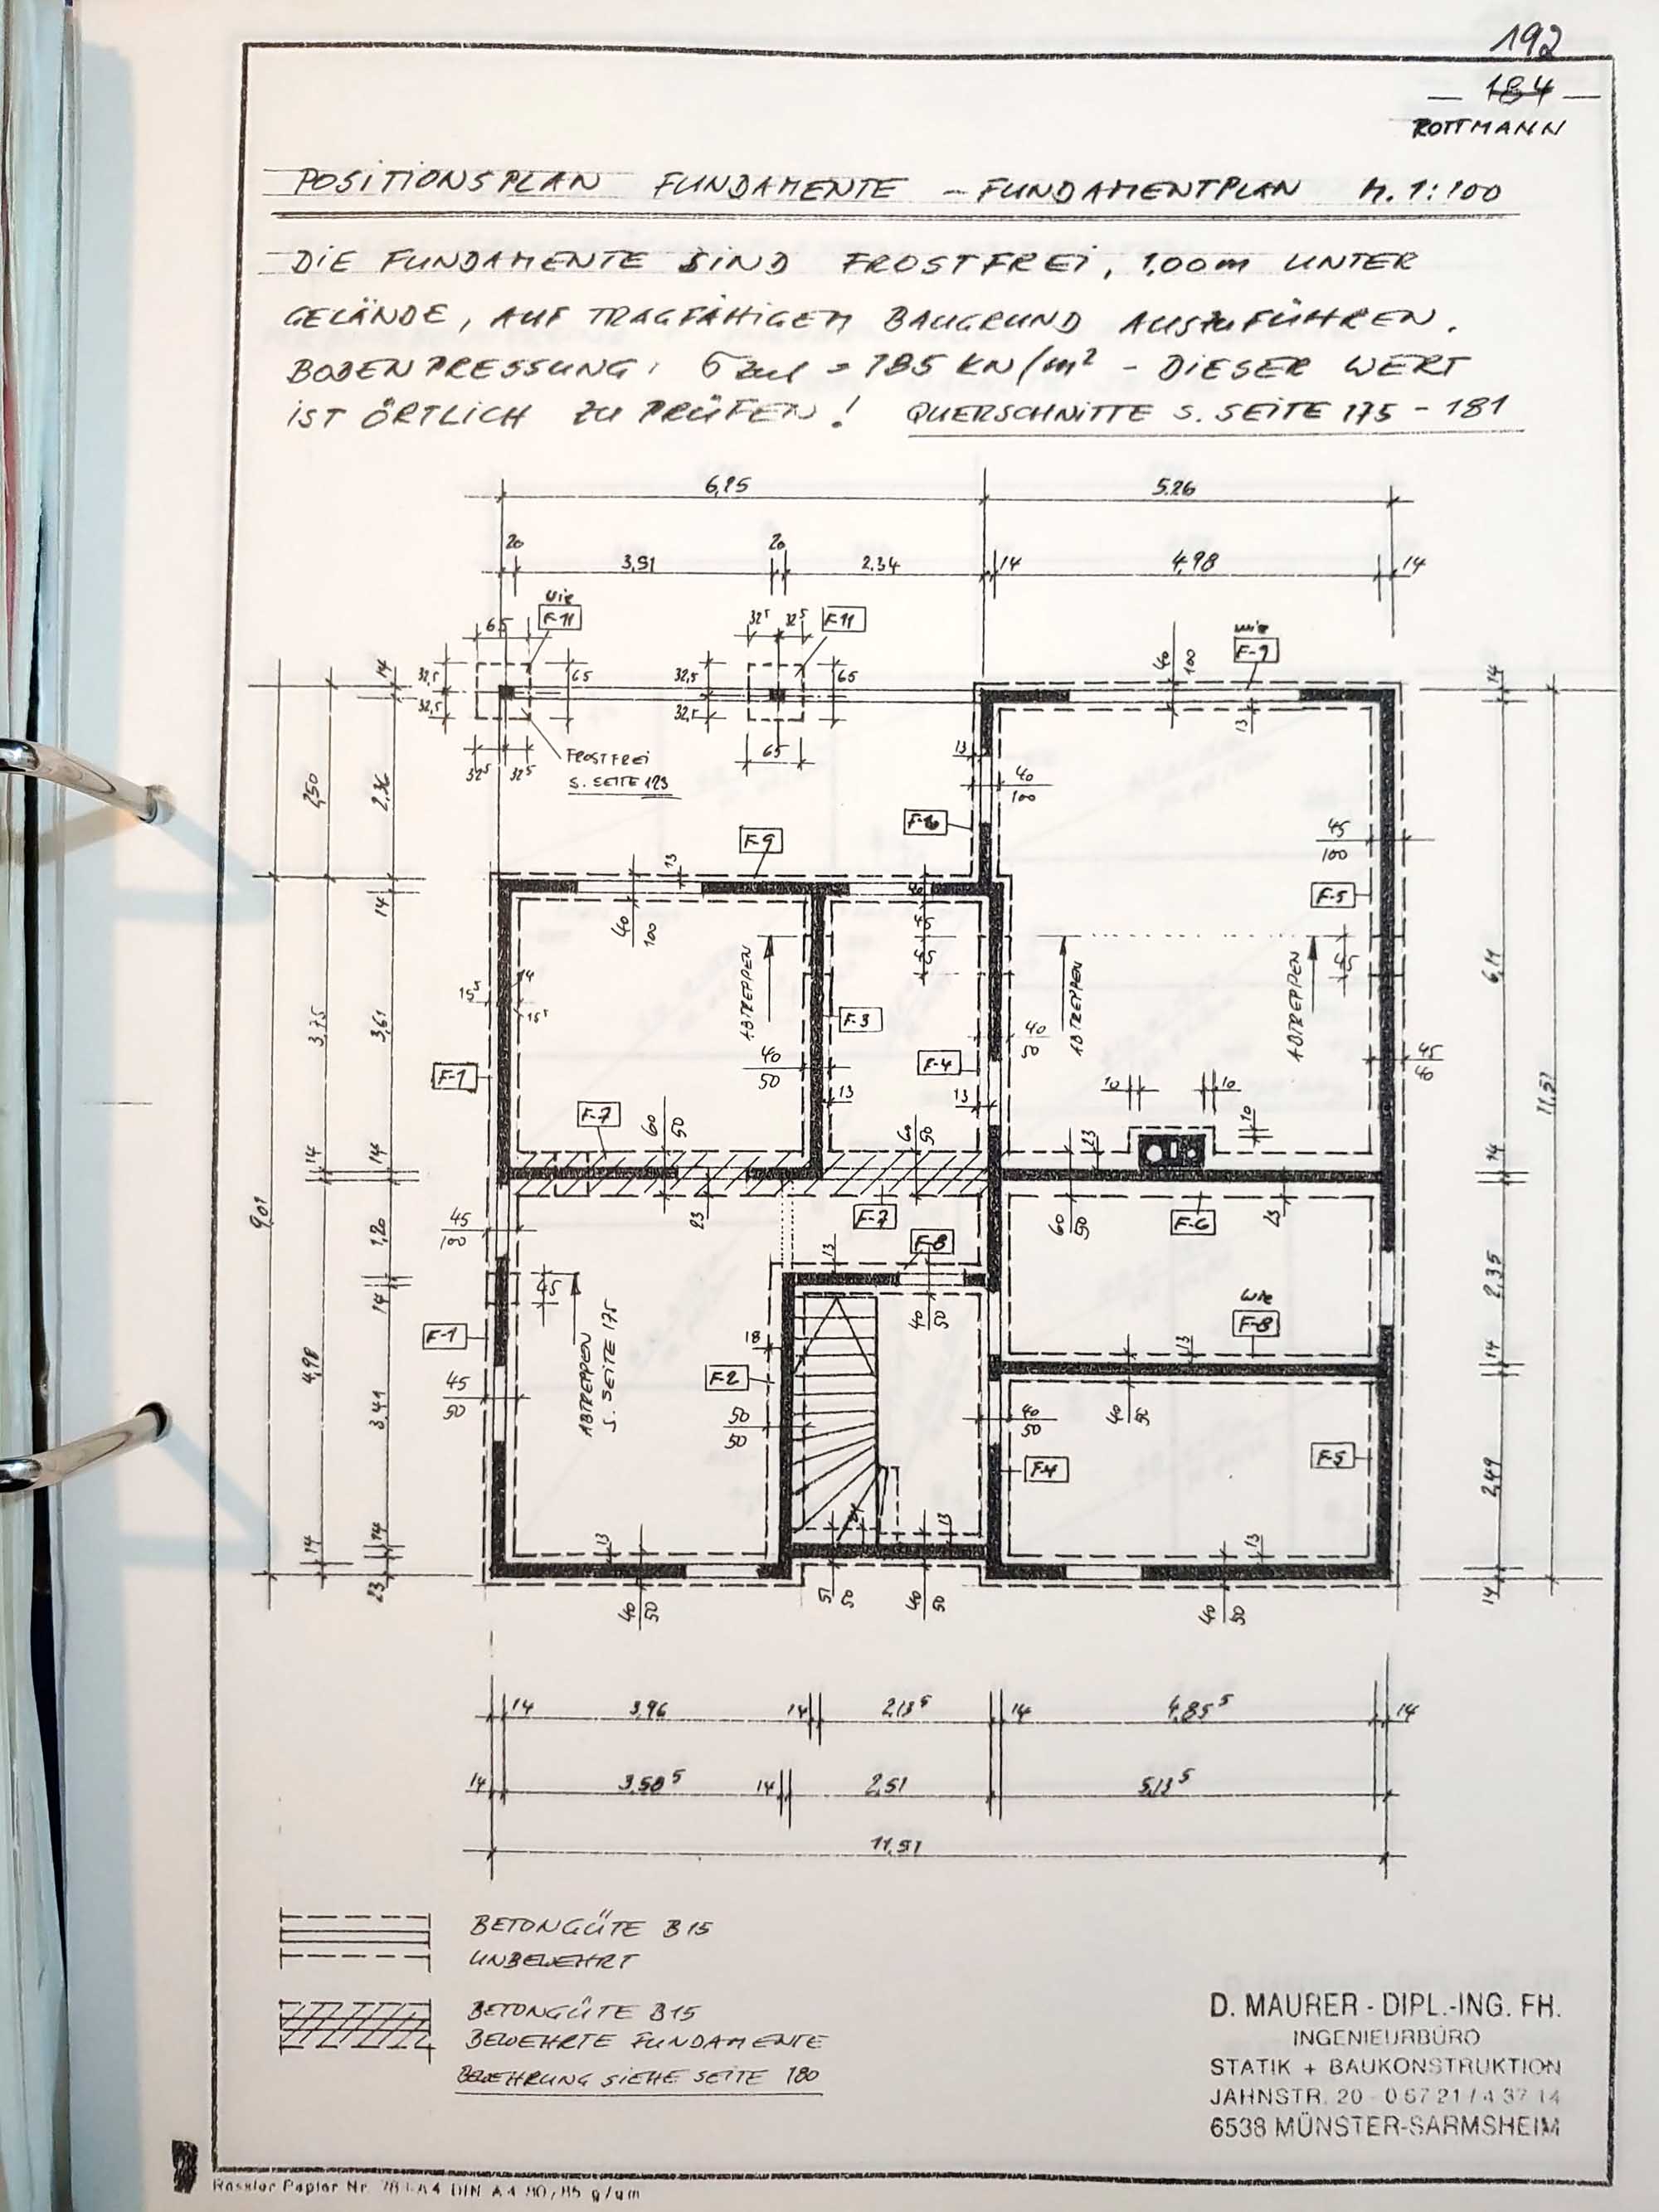 192
— 184 —
ROTTMANN
POSITIONSPLAN FUNDAMENTE - FUNDAMENTPLAN M. 1:100
DIE FUNDAMENTE SIND FROSTFREI, 1.00m UNTER
GELÄNDE, AUF TRAGFÄHIGEM BAUGRUND AUSZUFÜHREN.
BODENPRESSUNG: σ zul = 185 KN/m² - DIESER WERT
IST ÖRTLICH ZU PRÜFEN! QUERSCHNITTE S. SEITE 175 - 181
6,25 5.26
20 3,91 20 2.34 14 4,98 14
wie
F-11
F-11
wie
F-9
65 32⁵ 32⁵ 40 100
32,5 65 32,5 65
32,5 32,5
14 14
13 13
32⁵ 32⁵ 65
FROSTFREI
S. SEITE 123
2,50 2,36
40
100
F-10
F-9
13
45
100
F-5
14
40 100
40
45 45 45
ABTREPPEN
ABTREPPEN
ABTREPPEN
14
15⁵
15⁵
3,75 3,61
F-3
6,11
40
50
40
50
F-4
45
40
F-1
13 13
10 10 10
11,51
F-7
60 50
60 50
14 14
23
14
9,01
45
100
23
F-7
60 50
F-6
23
1,20
F-8
13
14
45
2,35
wie
F-8
F-1
ABTREPPEN
S. SEITE 175
40 50
18
13
14
4,98
F-2
45
50
50
50
40
50
40 50
3,41
F-4
F-5
2,49
14 14 23
13 13 13
40 50
51 50
40 50
40 50
14
14 3,96 14 2,13⁵ 14 4,85⁵ 14
14 3,58⁵ 14 2,51 5,13⁵
11,51
BETONGÜTE B15
UNBEWEHRT
BETONGÜTE B15
BEWEHRTE FUNDAMENTE
BEWEHRUNG SIEHE SEITE 180
D. MAURER - DIPL.-ING. FH.
INGENIEURBÜRO
STATIK + BAUKONSTRUKTION
JAHNSTR. 20 - 0 67 21 / 4 37 14
6538 MÜNSTER-SARMSHEIM
Rössler Papier Nr. 781-A4 DIN A4 80/85 g/qm